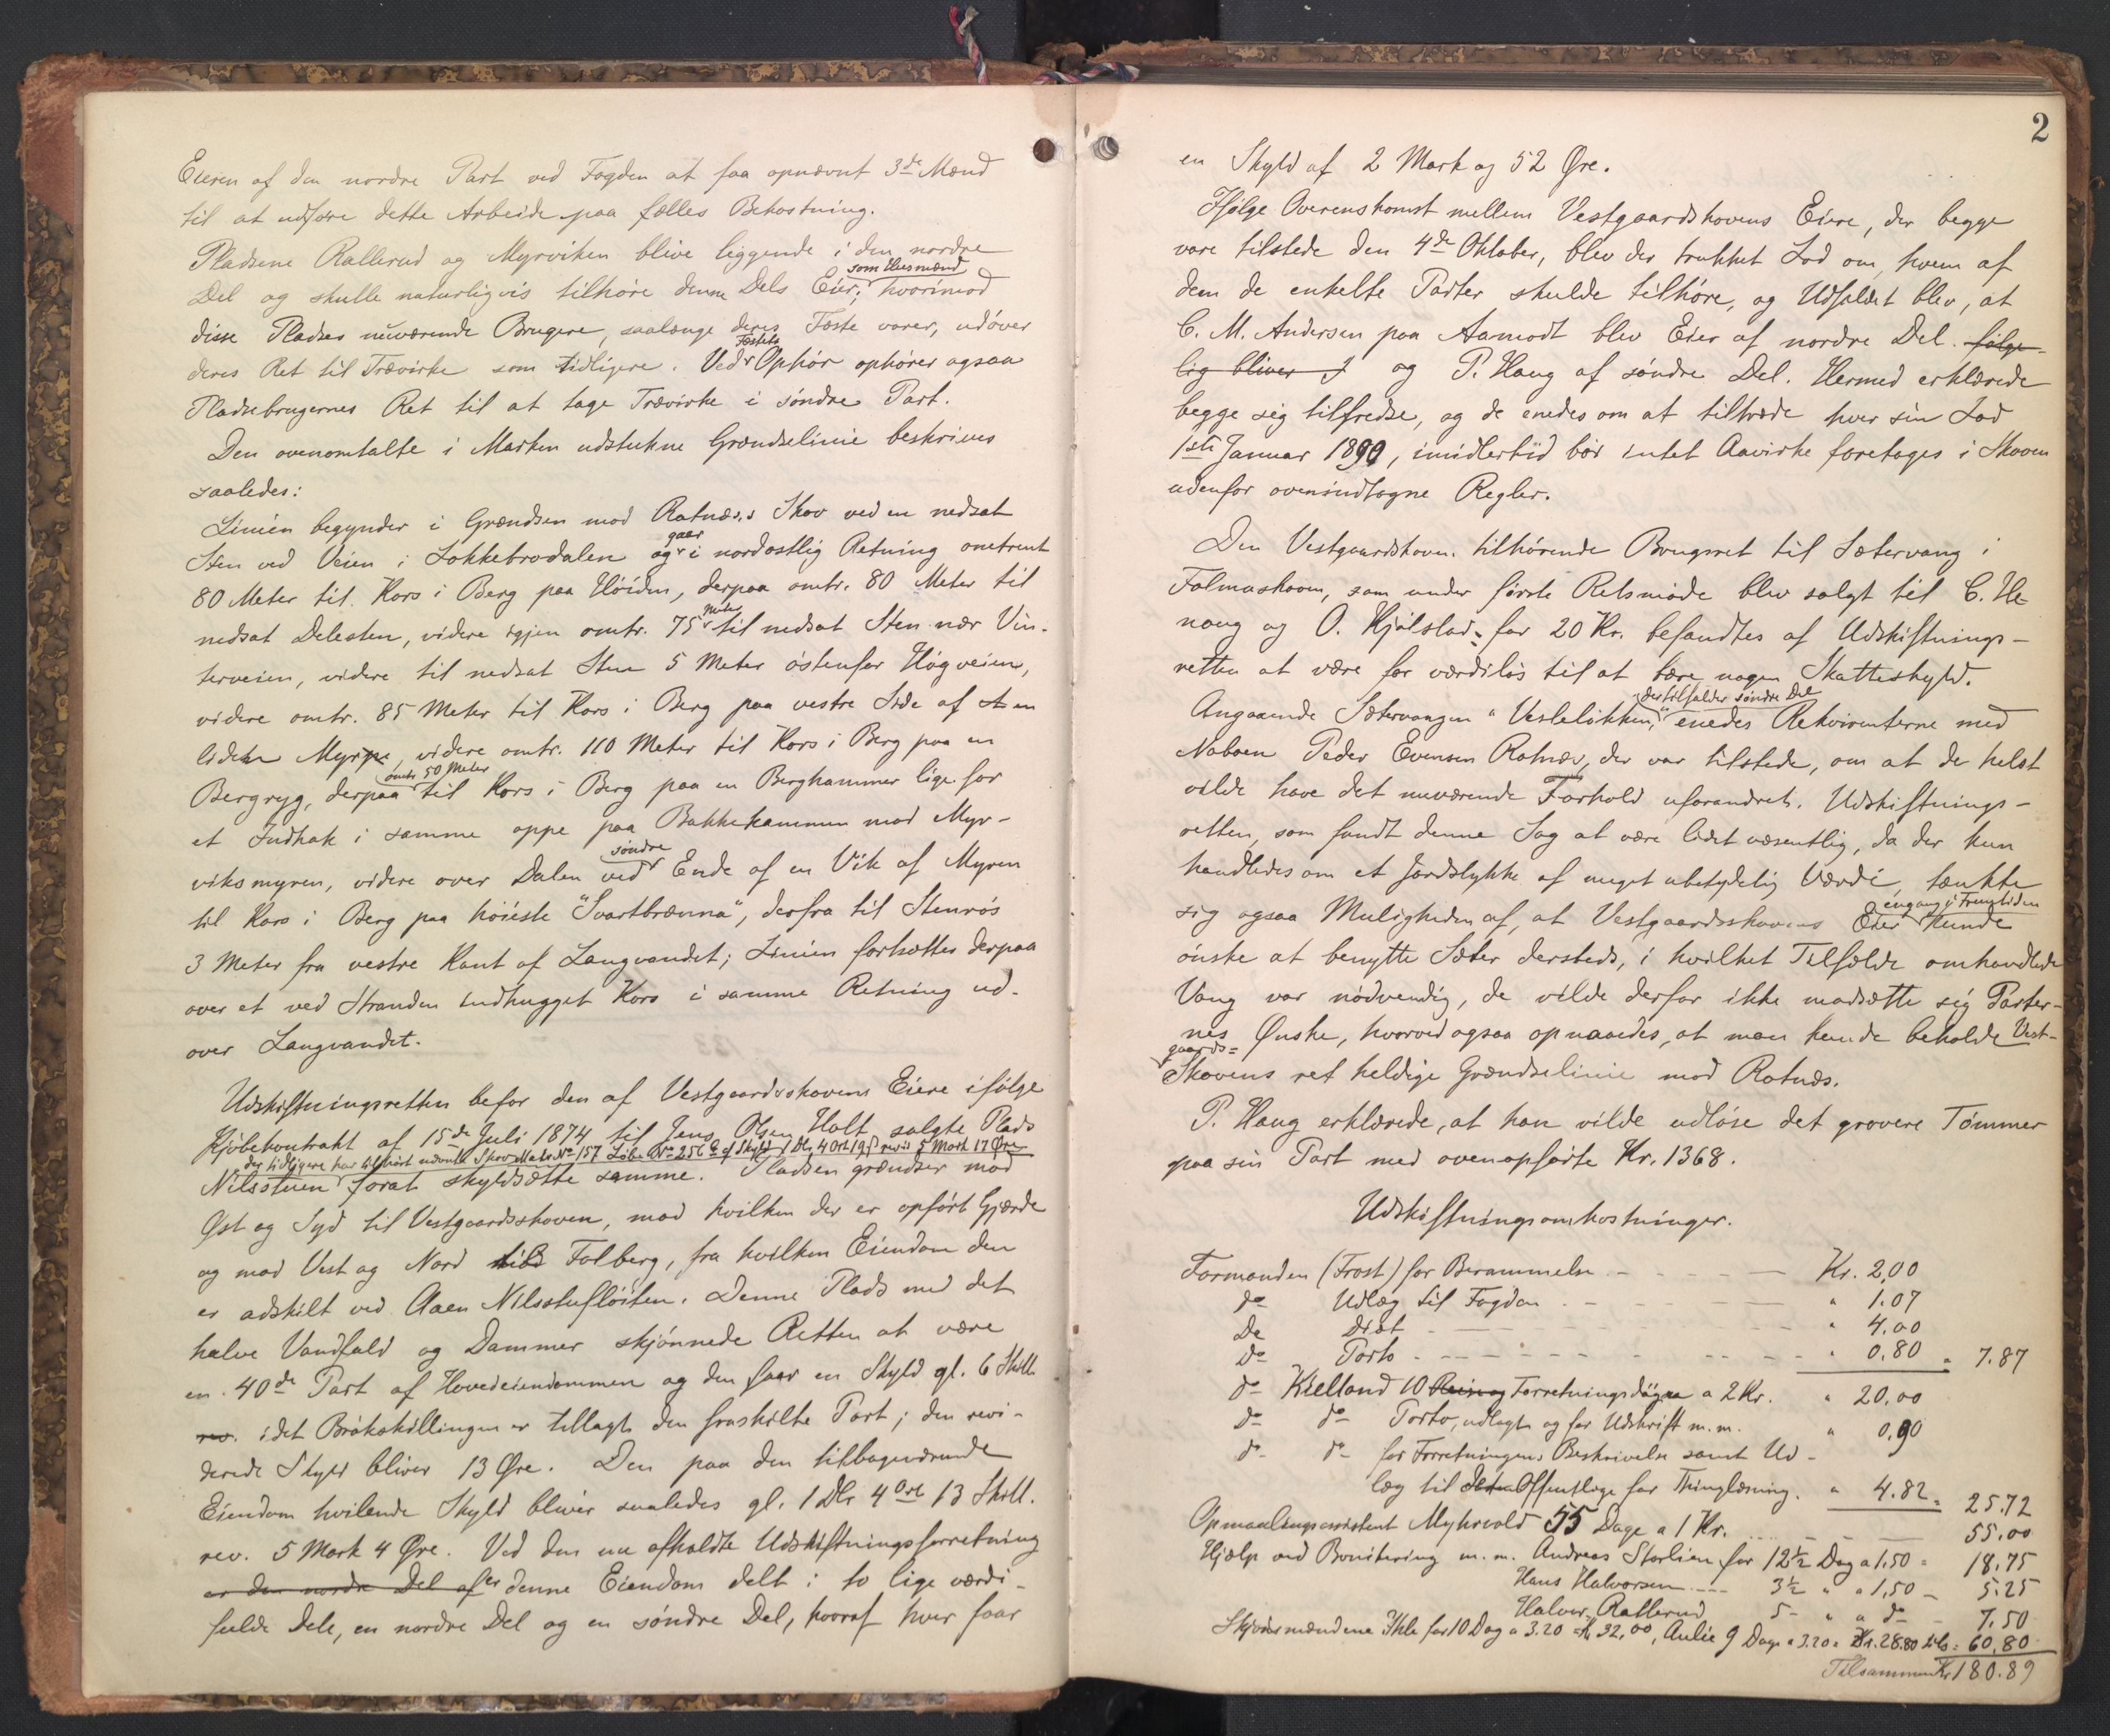 Eieren af den nordre Part ved Fogden at faa opnævnt 3de Mænd
til at udføre dette Arbeide paa fælles Bekostning.
Pladsene Rallerud og Myrviken blive liggende i den nordre
som Husmænd
Del og skulle naturligvis tilhøre denne Dels Eier; hvorimod
disse Pladses nuværende Brugere, saalænge deres Fæste varer, udøver
Fæstets
deres Ret til Trævirke som tidligere. Ved Ophør ophører agsaa
Pladsebrugernes Ret til at tage Trævirke i søndre Part.
Den ovenomtalte i Marken udstukne Grændselinie beskrives
saaledes:
Linien begynder i Grændsen mod Ratnæs's Skov ved en nedsat
gaar
Sten ved Veien i Lokkebrodalen og i nordostlig Retning omtrent
80 Meter til Kors i Berg paa Høiden, derpaa omtr. 80 Meter til
Meter
nedsat Delesten, videre igjen omtr. 75 til nedsat Sten nær Vin-
terveien, videre til nedsat Sten 5 Meter østenfor Høgveien,
videre omtr. 85 Meter til Kors i Berg paa vestre Side af en
liden Myr, videre omtr. 110 Meter til Kors i Berg paa en
omtr. 50 Meter
Bergryg, derpaa til Kors i Berg paa en Berghammer lige for
et Indhak i samme oppe paa Bakkekammen mod Myr-
søndre
viksmyren, videre over Dalen ved Ende af en Vik af Myren
til Kors i Berg paa høieste "Svartbrænna", derfra til Stenrøs
3 Meter fra vestre Kant af Langvandet; Linien fortsættes derpaa
over et ved Stranden indhugget Kors i samme Retning ud-
over Langvandet.
Udskiftningsretten befor den af Vestgaardsskovens Eiere ifølge
Kjøbekontrakt af 15de Juli 1874 til Jens Olsen Holt solgte Plads
der tidligere har tilhørt udvalte Skov Matr No 157 Løbe No 256 a af Skyld 1 Dlr 4 Ort 19 ß revi 5 Mark 17 Øre
Nilsstuen forat skyldsætte samme. Pladsen grændser mod
Øst og Syd til Vestgaardsskoven, mod hvilken der er opført Gjærde
og mod Vest og Nord til Folberg, fra hvilken Eiendom den
er adskilt ved Aaen Nilsstufløiten. Denne Plads med det
halve Vandfald og Dammer skjønnede Retten at være
en 40de Part af Hovedeiendommen og den faar en Skyld gl. 6 Skill.
rev. idet Brøkskillingen er tillagt den fraskilte Part; den revi-
derede Skyld bliver 13 Øre. Den paa den tilbageværende
Eiendom hvilende Skyld bliver saaledes gl. 1 Dlr 4 Ort 13 Skill.
rev. 5 Mark 4 Øre. Ved den nu afholdte Udskiftningsforretning
er den nordre Del af er denne Eiendom delt i to lige værdi-
fulde Dele, en nordre Del og en søndre Del, hvoraf hver faar
2
en Skyld af 2 Mark og 52 Øre.
Ifølge Overenskomst mellem Vestgaardskovens Eiere, der begge
vare tilstede den 4de Oktober, blev der trukket Lod om, hvem af
dem de enkelte Parter skulde tilhøre, og Udfaldet blev, at
C. M. Andersen paa Aamodt blev Eier af nordre Del. følge-
lig bliver J og P. Haug af søndre Del. Hermed erklærede
begge sig tilfredse, og de enedes om at tiltræde hver sin Lod
1ste Januar 1890, imidlertid bør intet Aavirke foretages i Skoven
udenfor ovenindtagne Regler.
Den Vestgaardskoven tilhørende Brugsret til Sætervang i
Folmaskoven, som under første Retsmøde blev solgt til C. He
naug og O. Kjølstad for 20 Kr. befandtes af Udskiftnings-
retten at være for værdiløs til at bære nogen Skatteskyld.
der tilfalder søndre Del
Angaaende Sætervangen "Vesleløkken", enedes Rekvirenterne med
Naboen Peder Evensen Ratnæs, der var tilstede, om at de helst
vilde have det nuværende Forhold uforandret. Udskiftnings-
retten, som fandt denne Sag at være lidet væsentlig, da der kun
handledes om et Jordstykke af meget ubetydelig Værdi, tænkte
engang i Fremtiden
sig agsaa Muligheden af, at Vestgaardsskovens Eier kunde
ønske at benytte Sæter dersteds, i hvilket Tilfælde omhandlede
Vang var nødvendig, de vilde derfor ikke modsætte sig Parter-
nes Ønske, hvorved ogsaa opnaaedes, at man kunde beholde Vest-
gaards-
Skovens ret heldige Grændselinie mod Ratnæs.
P. Haug erklærede, at han vilde udløse det grovere Tømmer
paa sin Part med ovenopførte Kr. 1368.
Udskiftningsomkostninger.
Formanden (Frost) for Berammelse - - - Kr. 2,00
do Udlæg til Fogden - - - " 1.07
Do Diæt - - - " 4.00
Do Porto - - - " 0.80 " 7.87
do Kielland 10 Reise og Forretningsdøgn a 2 Kr. " 20,00
do do Porto, udlagt og for Udskrift m.m. " 0,90
do do for Forretningens Beskrivelse samt Ud-
læg til det Offentlige for Thinglæsning. " 4.82 = 25.72
Opmaalingsassistent Myhrvold 55 Dage a 1 Kr. - - - 55.00
Hjælp ved Bonitering m.m. Andreas Storlien for 12½ Dag a 1,50 = 18.75
Hans Halvorsen - - 3½ " a 1,50 - 5.25
Halvor Rallerud 5 - " a do - 7.50
Skjønsmændene Ihle for 10 Dag a 3.20 = Kr 32,00, Aulie 9 Dage a 3.20 = Kr. 28.80 tils = 60.80
Tilsammen Kr 180.89